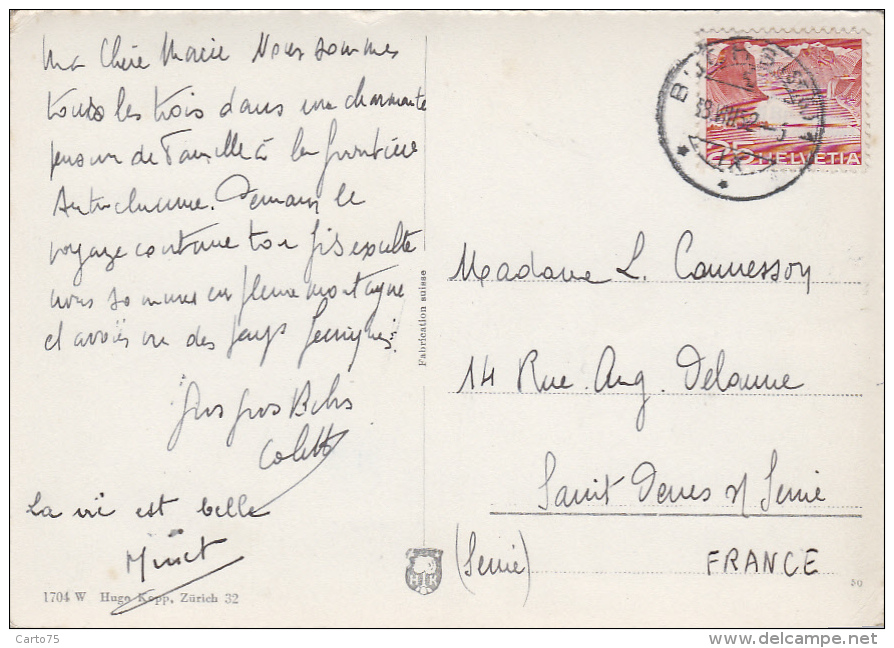 Ma Chère Marie Nous sommes
tous les trois dans une charmante
pension de Famille à la frontière
Autrichienne. Demain le
voyage continue ton fils exulte
nous sommes en pleine montagne
et avons vu des pays
Gros gros Bibis
Colette
La vie est belle
Minet
1704 W Hugo Kopp, Zürich 32
Fabrication suisse
HK
BUCHS
HELVETIA
Madame L. Connesson
14 Rue. Aug. Delaune
Saint Denis s/ Seine
(Seine) FRANCE
Carto75
delcampe.net